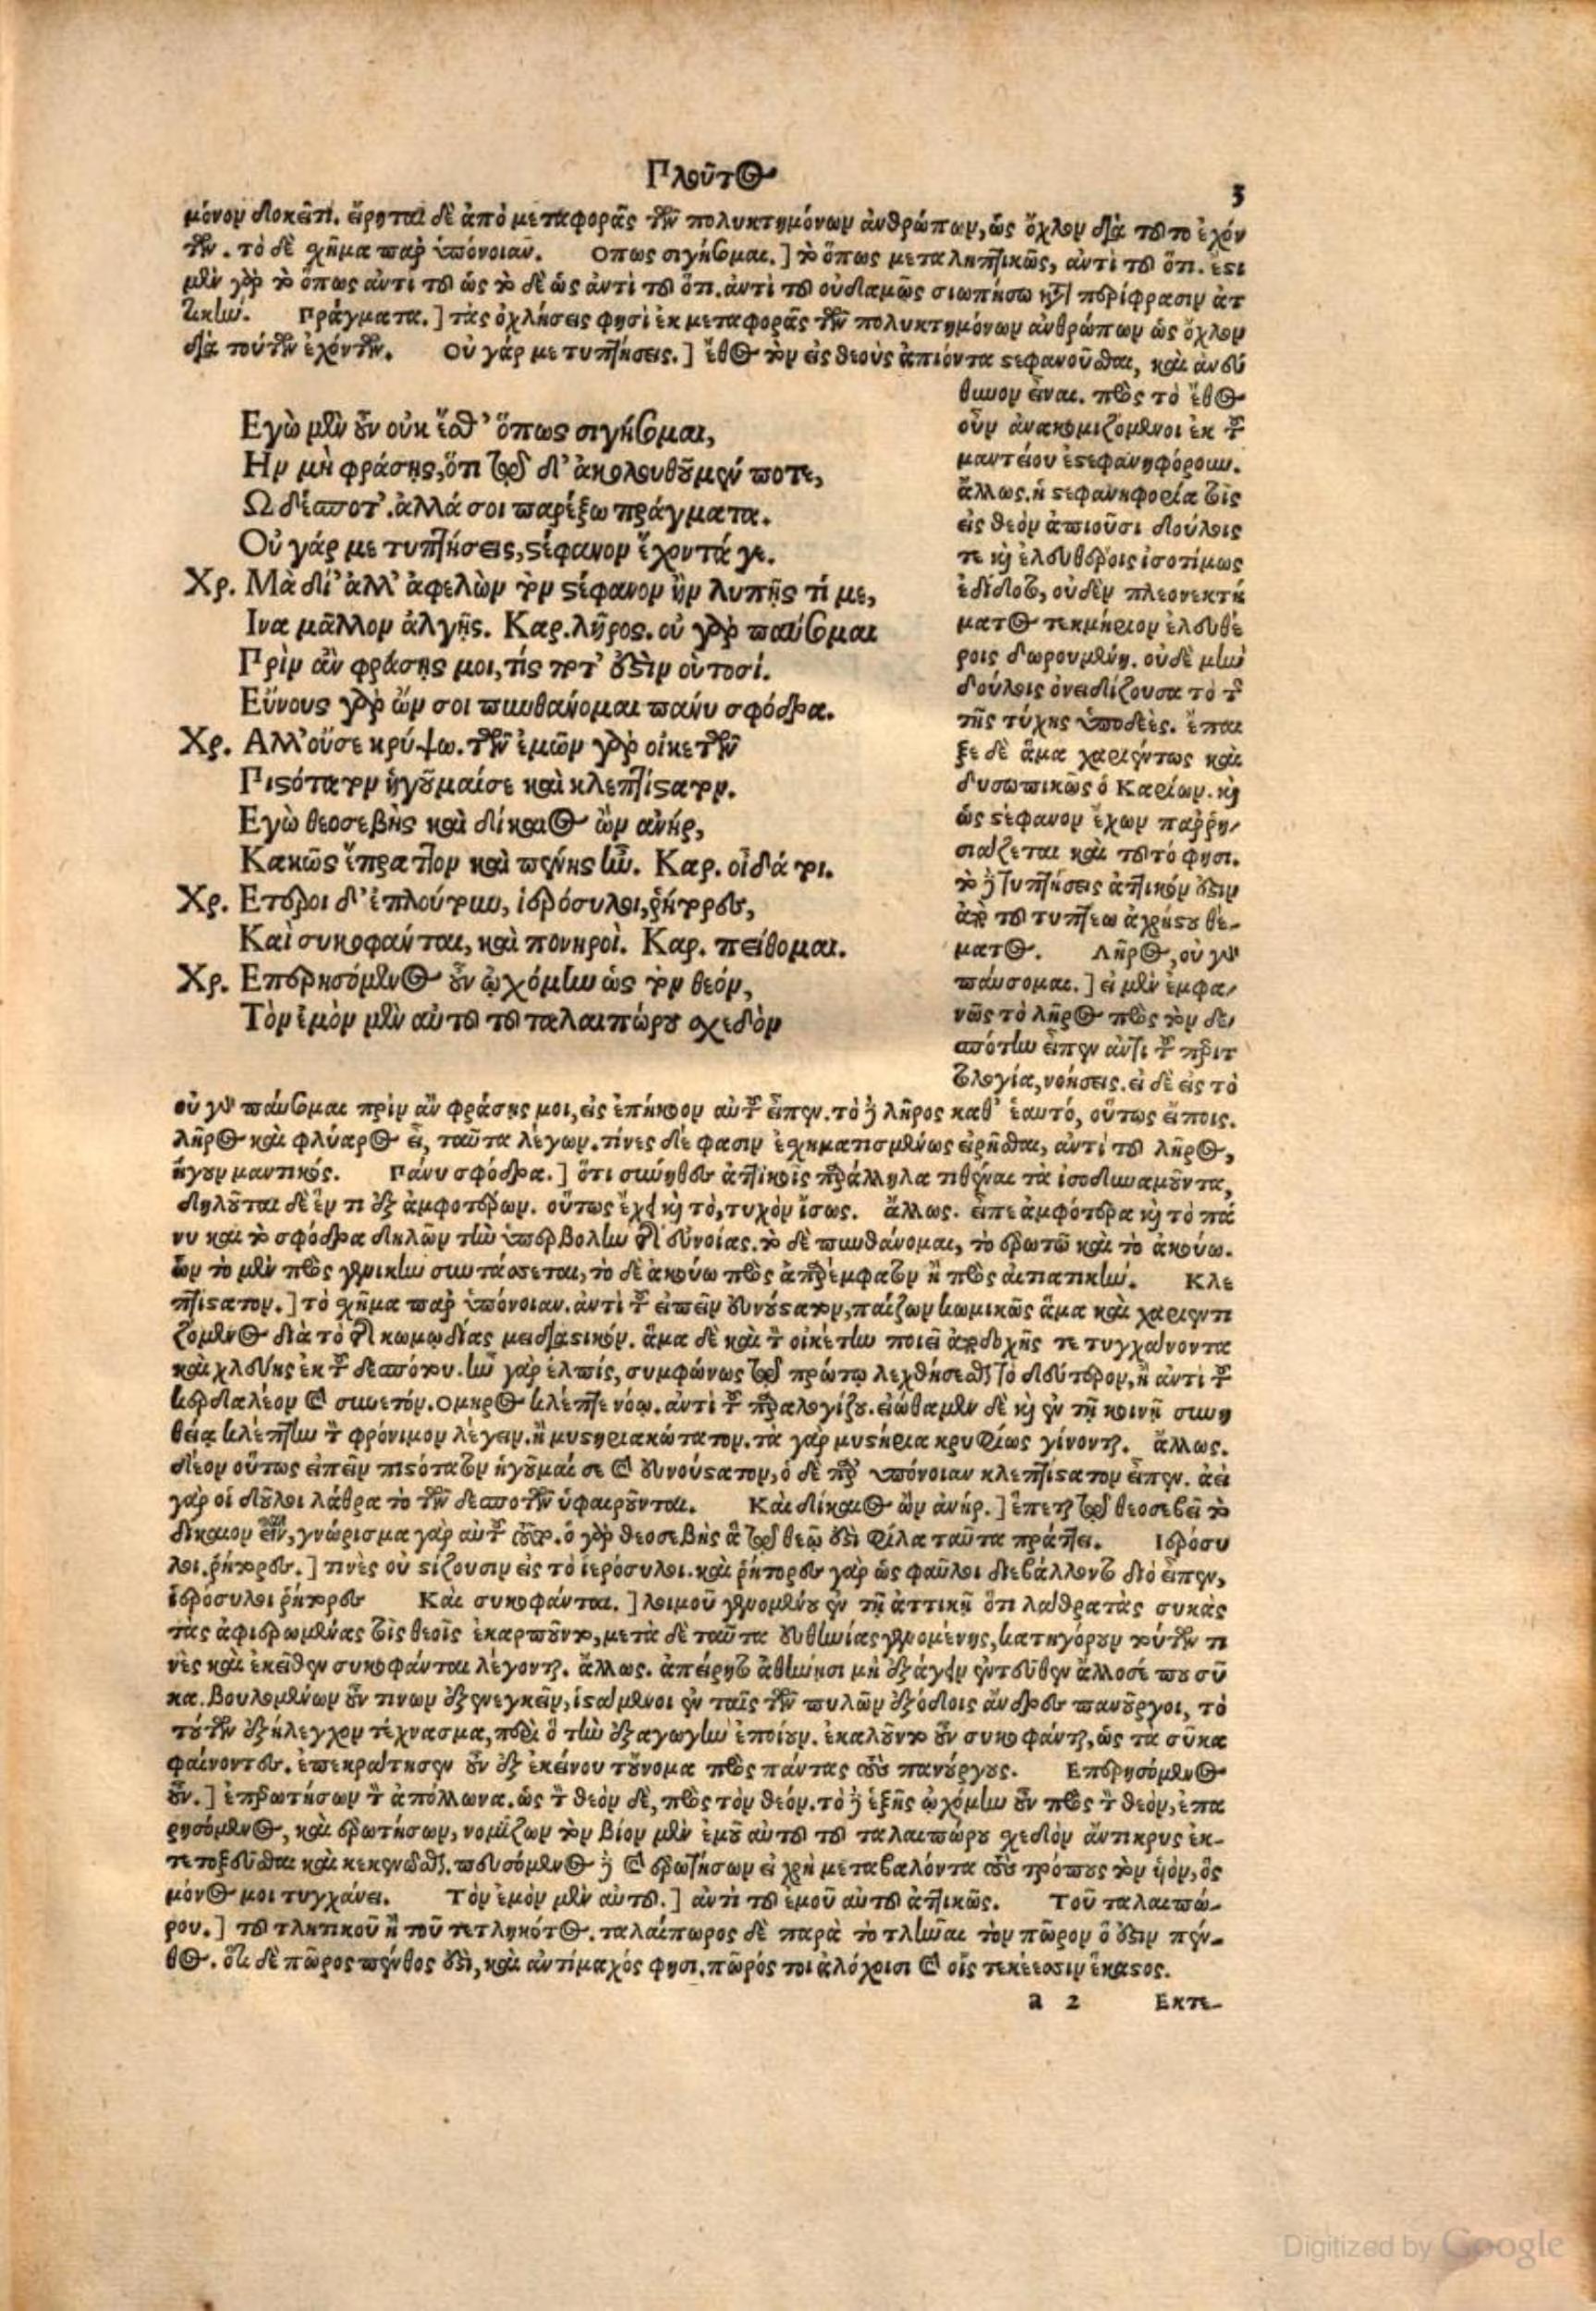 Πλοῦτος
3
μόνον δοκεῖτι. εἴρηται δὲ ἀπὸ μεταφορᾶς τῶν πολυκτημόνων ἀνθρώπων, ὡς ὄχλον διὰ τοῦτο ἐχόν
των. τὸ δὲ σχῆμα παρ' ὑπόνοιαν. Οπως σιγήσομαι.] τὸ ὅπως μεταληπτικῶς, ἀντὶ τοῦ ὅτι. ἔστι
μὲν γὰρ τὸ ὅπως ἀντὶ τοῦ ὡς τὸ δὲ ὡς ἀντὶ τοῦ ὅτι. ἀντὶ τοῦ οὐδαμῶς σιωπήσω κατὰ περίφρασιν ἀτ
τικήν. Πράγματα.] τὰς ὀχλήσεις φησὶ ἐκ μεταφορᾶς τῶν πολυκτημόνων ἀνθρώπων ὡς ὄχλον
διὰ τούτων ἐχόντων. Οὐ γάρ με τυπτήσεις.] ἔθος τὸν εἰς θεοὺς ἀπιόντα στεφανοῦσθαι, καὶ ἀνεύ
θυνον εἶναι. πρὸς τὸ ἔθος
οὖν ἀνακομιζόμενοι ἐκ τοῦ
μαντείου ἐστεφανηφόρουν.
ἄλλως. ἡ στεφανηφορία τοῖς
εἰς θεὸν ἀπιοῦσι δούλοις
τε καὶ ἐλευθέροις ἰσοτίμως
ἐδίδοτο, οὐδὲν πλεονεκτή
ματος τεκμήριον ἐλευθέ
ροις δωρουμένη. οὐδὲ μὴν
δούλοις ὀνειδίζουσα τὸ
τῆς τύχης ὑποδεές. ἔπαι
ξε δὲ ἅμα χαριέντως καὶ
δυσωπικῶς ὁ Καρίων. καὶ
ὡς στέφανον ἔχων παρρη-
σιάζεται καὶ τοῦτό φησι.
τὸ δὲ τυπτήσεις ἀττικόν ἐστιν
ἀπὸ τοῦ τυπτέω ἀχρήστου θέ-
ματος. Λῆρος, οὐ γὰρ
παύσομαι.] εἰ μὲν ἐμφα-
νῶς τὸ λῆρος πρὸς τὸν δε-
σπότην εἶπεν ἀντὶ τοῦ περιτ
τολογία, νοήσεις. εἰ δὲ εἰς τὸ
Εγὼ μὲν οὖν οὐκ ἔσθ' ὅπως σιγήσομαι,
Ην μὴ φράσῃς, ὅτι τῷδ' ἀκολουθοῦμέν ποτε,
Ω δέσποτ'. ἀλλά σοι παρέξω πράγματα.
Οὐ γάρ με τυπτήσεις, στέφανον ἔχοντά γε.
Χρ. Μὰ δί' ἀλλ' ἀφελὼν τὸν στέφανον ἢν λυπῇς τί με,
Ινα μᾶλλον ἀλγῇς. Καρ. λῆρος. οὐ γὰρ παύσομαι
Πρὶν ἂν φράσῃς μοι, τίς ποτ' ἐστὶν οὑτοσί.
Εὔνους γὰρ ὤν σοι πυνθάνομαι πάνυ σφόδρα.
Χρ. Αλλ' οὔσε κρύψω. τῶν ἐμῶν γὰρ οἰκετῶν
Πιστότατον ἡγοῦμαί σε καὶ κλεπτίστατον.
Εγὼ θεοσεβὴς καὶ δίκαιος ὢν ἀνήρ,
Κακῶς ἔπραττον καὶ πένης ἦν. Καρ. οἶδά τοι.
Χρ. Ετεροι δ' ἐπλούτουν, ἱερόσυλοι, ῥήτορες,
Καὶ συκοφάνται, καὶ πονηροί. Καρ. πείθομαι.
Χρ. Επερησόμενος οὖν ᾠχόμην ὡς τὸν θεόν,
Τὸν ἐμὸν μὲν αὐτοῦ τοῦ ταλαιπώρου σχεδὸν
οὐ γὰρ παύσομαι πρὶν ἂν φράσῃς μοι, εἰς ἐπήκοον αὐτοῦ εἶπεν. τὸ δὲ λῆρος καθ' ἑαυτό, οὕτως εἴποις.
λῆρος καὶ φλύαρος εἶ, ταῦτα λέγων. τινὲς δέ φασιν ἐσχηματισμένως εἰρῆσθαι, ἀντὶ τοῦ λῆρος,
ἤγουν μαντικός. Πάνυ σφόδρα.] ὅτι σύνηθες ἀττικοῖς παράλληλα τιθέναι τὰ ἰσοδυναμοῦντα,
δηλοῦται δὲ ἕν τι ἐξ ἀμφοτέρων. οὕτως ἔχει καὶ τὸ, τυχὸν ἴσως. ἄλλως. εἶπε ἀμφότερα καὶ τὸ πά
νυ καὶ τὸ σφόδρα δηλῶν τὴν ὑπερβολὴν τῆς εὐνοίας. τὸ δὲ πυνθάνομαι, τὸ ἐρωτῶ καὶ τὸ ἀκούω.
ὧν τὸ μὲν πρὸς γενικὴν συντάσσεται, τὸ δὲ ἀκούω πρὸς ἀπαρέμφατον ἢ πρὸς αἰτιατικήν. Κλε
πτίστατον.] τὸ σχῆμα παρ' ὑπόνοιαν. ἀντὶ τοῦ εἰπεῖν εὐνούστατον, παίζων κωμικῶς ἅμα καὶ χαριεντι
ζόμενος διὰ τὸ τῆς κωμῳδίας μειδιαστικόν. ἅμα δὲ καὶ τὸν οἰκέτην ποιεῖ ἀποδοχῆς τε τυγχάνοντα
καὶ χλεύης ἐκ τοῦ δεσπότου. ἦν γὰρ ἐλπίς, συμφώνως τῷ πρώτῳ λεχθήσεσθαι τὸ δεύτερον, ἢ ἀντὶ τοῦ
κερδαλέον καὶ συνετόν. Ομηρος κλέπτε νόῳ. ἀντὶ τοῦ παραλογίζου. εἰώθαμεν δὲ καὶ ἐν τῇ κοινῇ συνη
θείᾳ κλέπτην τὸν φρόνιμον λέγειν. ἢ μυστηριακώτατον. τὰ γὰρ μυστήρια κρυφίως γίνονται. ἄλλως.
δέον οὕτως εἰπεῖν πιστότατον ἡγοῦμαί σε καὶ εὐνούστατον, ὁ δὲ παρ' ὑπόνοιαν κλεπτίστατον εἶπεν. ἀεὶ
γὰρ οἱ δοῦλοι λάθρα τὸ τῶν δεσποτῶν ὑφαιροῦνται. Καὶ δίκαιος ὢν ἀνήρ.] ἕπεται τῷ θεοσεβεῖ τὸ
δίκαιον εἶναι, γνώρισμα γὰρ αὐτοῦ. ὁ γὰρ θεοσεβὴς ἃ τῷ θεῷ ἐστὶ φίλα ταῦτα πράττει. Ιερόσυ
λοι. ῥήτορες.] τινὲς οὐ στίζουσιν εἰς τὸ ἱερόσυλοι. καὶ ῥήτορες γὰρ ὡς φαῦλοι διεβάλλοντο διὸ εἶπεν,
ἱερόσυλοι ῥήτορες Καὶ συκοφάνται.] λοιμοῦ γενομένου ἐν τῇ ἀττικῇ ὅτι λάθρα τὰς συκὰς
τὰς ἀφιερωμένας τοῖς θεοῖς ἐκαρποῦντο, μετὰ δὲ ταῦτα εὐθηνίας γενομένης, κατηγόρουν τούτων τι
νὲς καὶ ἐκεῖθεν συκοφάνται λέγονται. ἄλλως. ἀπείρητο ἀθήνησι μὴ ἐξάγειν ἐντεῦθεν ἄλλοσέ που σῦ
κα. Βουλομένων οὖν τινων ἐξενεγκεῖν, ἱστάμενοι ἐν ταῖς τῶν πυλῶν ἐξόδοις ἄνδρες πανοῦργοι, τὸ
τούτων ἐξήλεγχον τέχνασμα, περὶ ὃ τὴν ἐξαγωγὴν ἐποίουν. ἐκαλοῦντο οὖν συκοφάνται, ὡς τὰ σῦκα
φαίνοντες. ἐπεκράτησεν οὖν ἐξ ἐκείνου τοὔνομα πρὸς πάντας τοὺς πανούργους. Επερησόμενος
οὖν.] ἐπερωτήσων τὸν ἀπόλλωνα. ὡς τὸν θεὸν δὲ, πρὸς τὸν θεόν. τὸ δὲ ἑξῆς ᾠχόμην οὖν πρὸς τὸν θεόν, ἐπε
ρησόμενος, καὶ ἐρωτήσων, νομίζων τὸν βίον μὲν ἐμοῦ αὐτοῦ τοῦ ταλαιπώρου σχεδὸν ἄντικρυς ἐκ-
τετοξεῦσθαι καὶ κεκενῶσθαι. πευσόμενος δὲ καὶ ἐρωτήσων εἰ χρὴ μεταβαλόντα τοὺς τρόπους τὸν υἱόν, ὃς
μόνος μοι τυγχάνει. Τὸν ἐμὸν μὲν αὐτοῦ.] ἀντὶ τοῦ ἐμοῦ αὐτοῦ ἀττικῶς. Τοῦ ταλαιπώ-
ρου.] τοῦ τλητικοῦ ἢ τοῦ τετληκότος. ταλαίπωρος δὲ παρὰ τὸ τλῆναι τὸν πῶρον ὅ ἐστιν πέν-
θος. ὅτι δὲ πῶρος πένθος ἐστὶ, καὶ ἀντίμαχός φησι. πῶρός τοι ἀλόχοισι καὶ οἷς τεκέεσσιν ἕκαστος.
a 2 Εκτε-
Digitized by Google